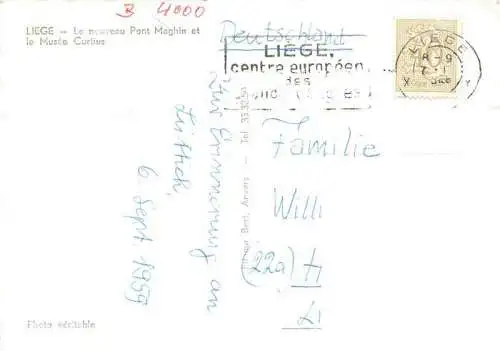 B 4000
LIEGE — Le nouveau Pont Maghin et
le Musée Curtius
Deutschland
LIEGE,
centre européen
des
LIEGE
8-9
Zur Erinnerung an
Lüttich,
6. Sept. 1959
Best, Anvers — Tel.
Familie
Willi
(22a)
Photo véritable